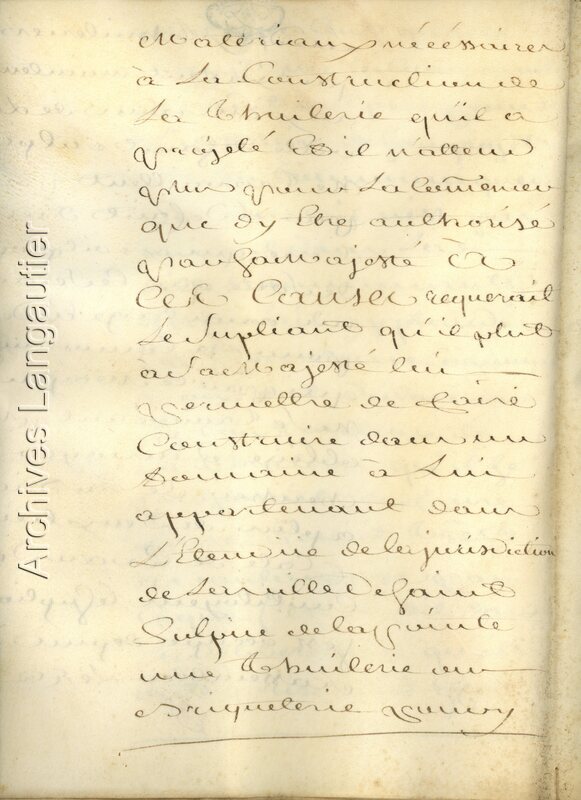 Materiaux nécéssaires
à La Construction de
La Thuilerie qu'il a
projeté Et il n'attend
plus pour La Com̃encer
que dy Etre authorisé
par sa Majesté à
Ces Causes requerait
Le Supliant qu'il plut
a Sa Majesté lui
permettre de faire
Construire dans un
Domaine à Lui
appartenant dans
L'Etendue de la jurisdiction
de La ville de Saint
Sulpice de la Pointe
une Thuilerie ou
Briqueterie pour y
Archives Langautier